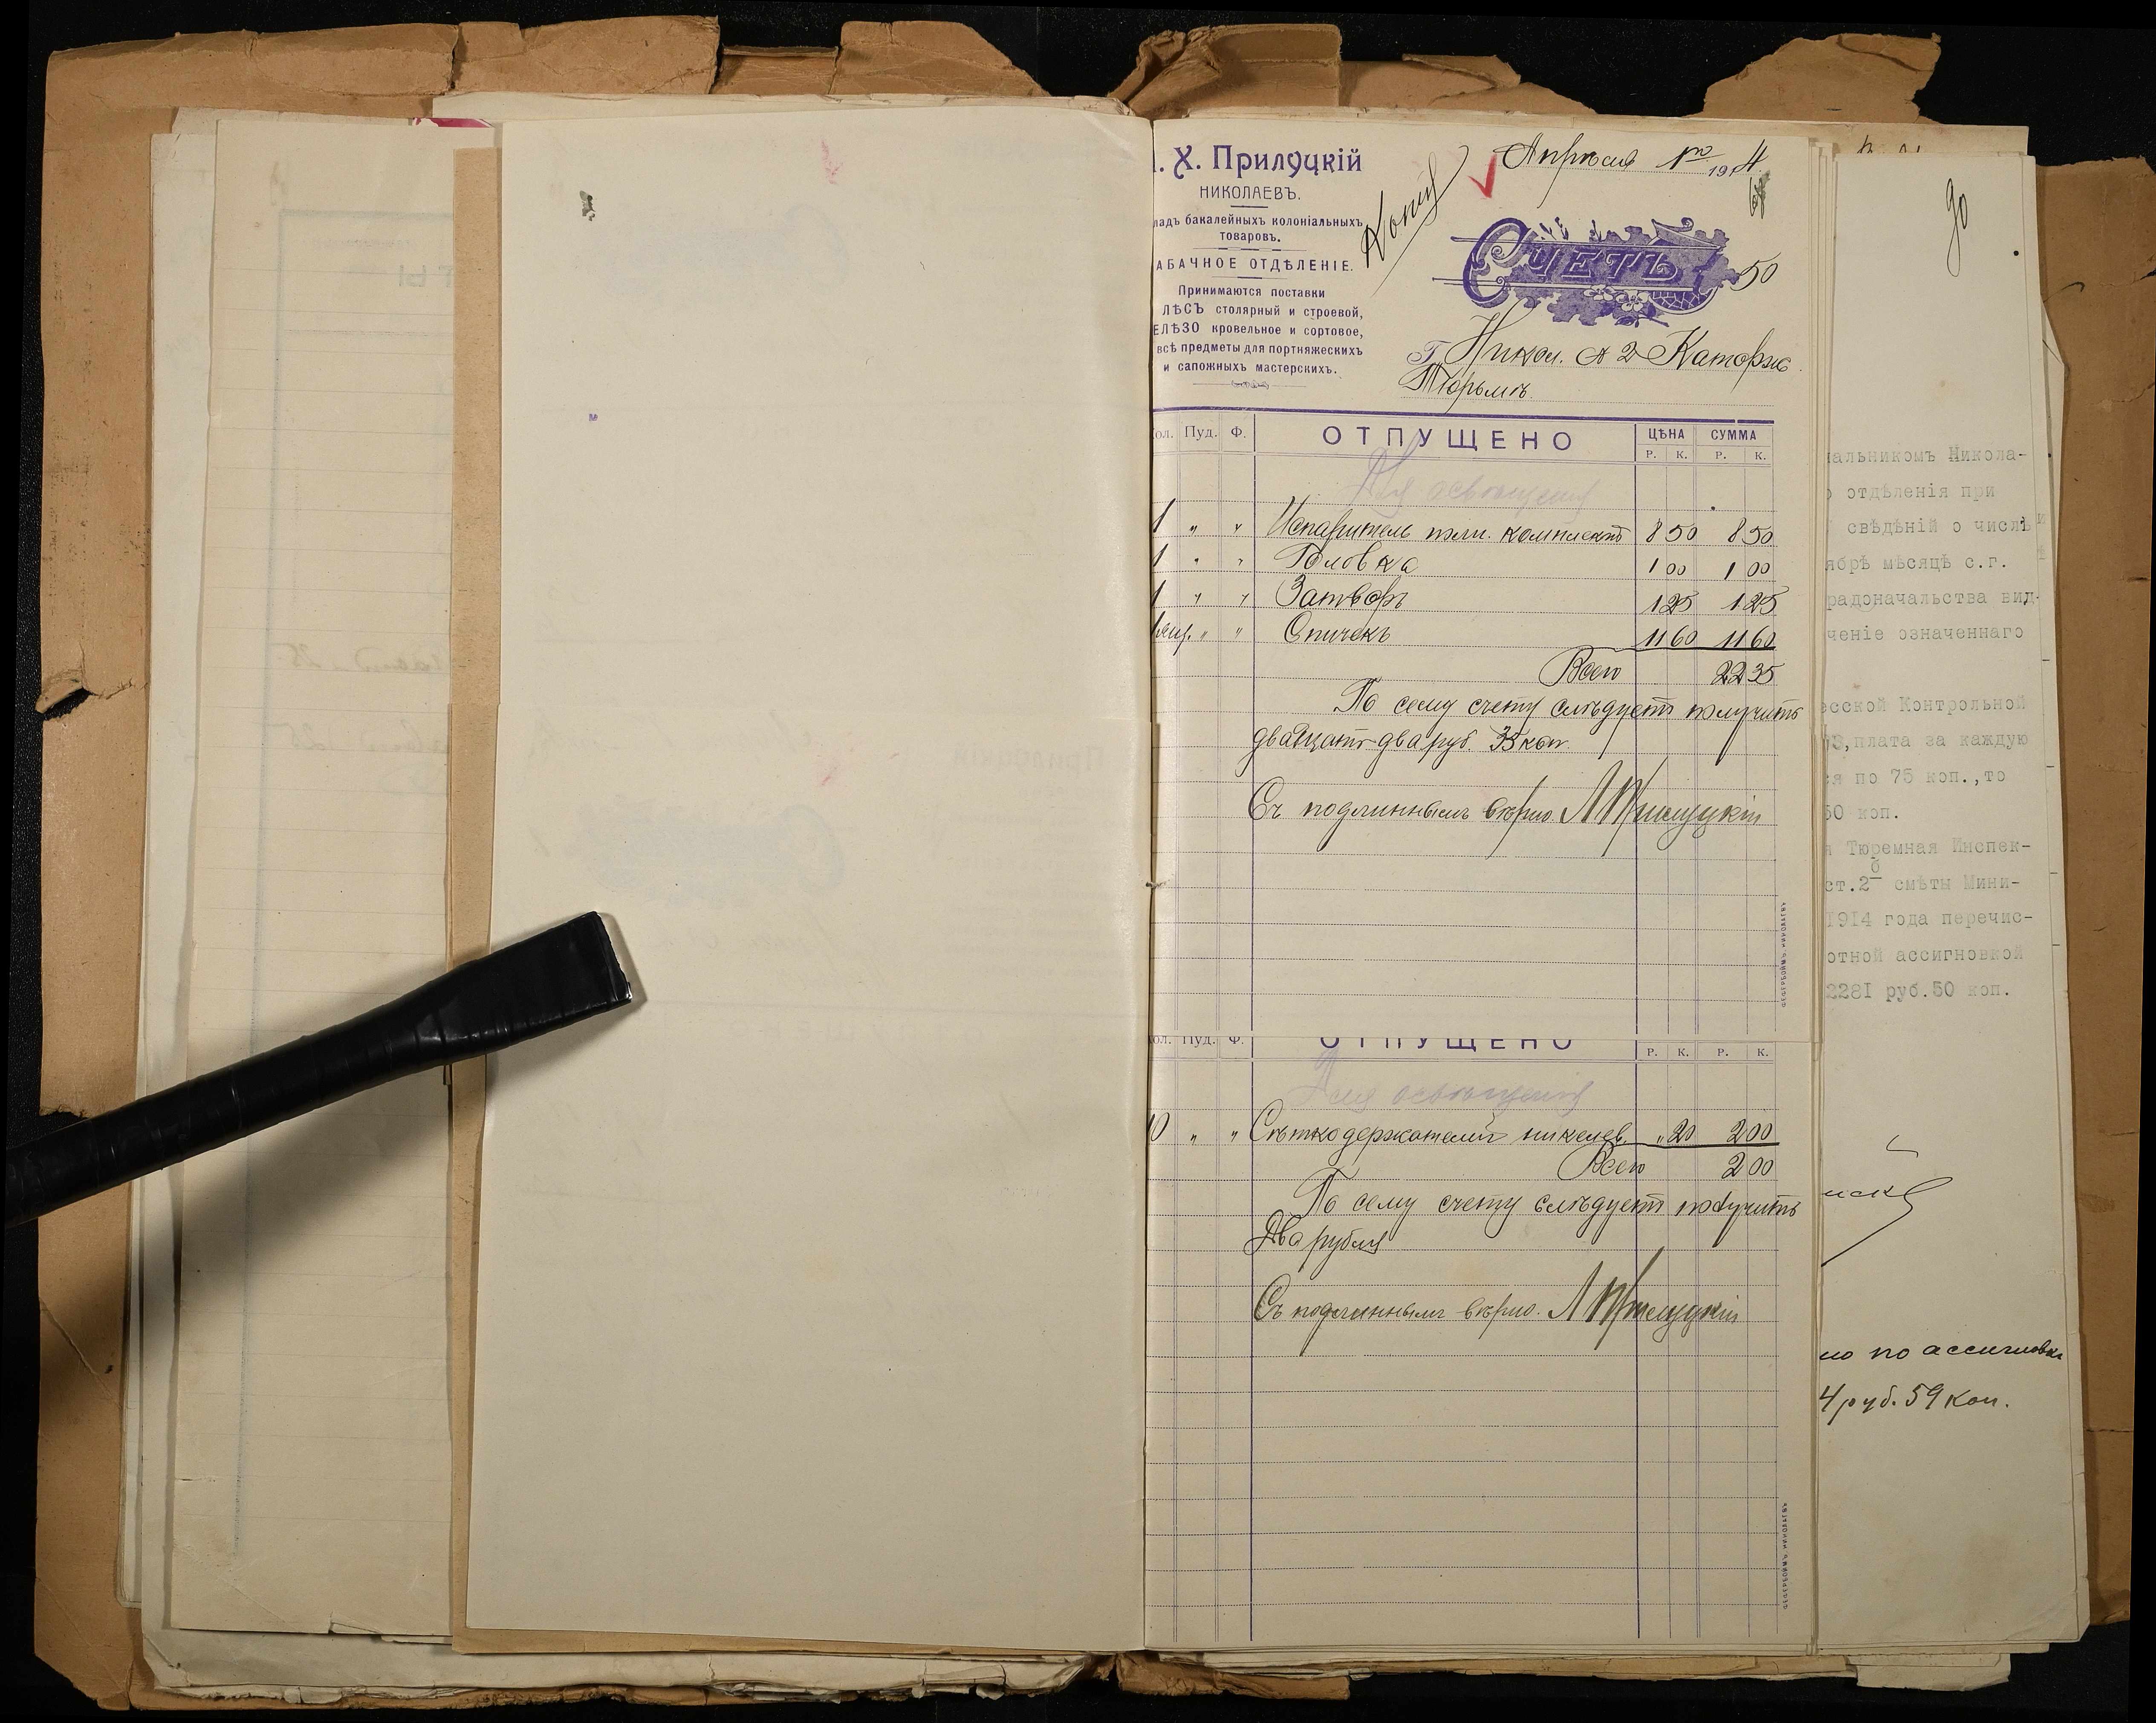 . Х. Прилуцкій
НИКОЛАЕВЪ.
ладъ бакалейныхъ колоніальныхъ
товаровъ.
АБАЧНОЕ ОТДѢЛЕНІЕ.
Принимаются поставки
ЛѢСЪ столярный и строевой,
ЕЛѢЗО кровельное и сортовое,
всѣ предметы для портняжескихъ
и сапожныхъ мастерскихъ.
Копія
Апрѣля 1го 1914
СЧЕТЪ
50
Г. Никол. А 2 Каторжо
Тюрьмѣ.
Кол. Пуд. Ф. ОТПУЩЕНО ЦѢНА СУММА
Р. К. Р. К.
Для освѣщенія
1 " " Испаритель полн. комплектъ 8 50 8 50
1 " " Головка 1 00 1 00
1 " " Затворъ 1 25 1 25
1 ящ. " " Спичекъ 11 60 11 60
Всего 22 35
По сему счету слѣдуетъ получить
двадцать два руб. 35 коп.
Съ подлиннымъ вѣрно. Л Прилуцкій
ол. Пуд. Ф. ОТПУЩЕНО Р. К. Р. К.
Для освѣщенія
10 " " Сѣткодержателей никелев. " 20 2 00
Всего 2 00
По сему счету слѣдуетъ получить
Два рубля
Съ подлиннымъ вѣрно. Л Прилуцкій
90
чальникомъ Никола-
отдѣленія при
свѣдѣній о числѣ
ябрѣ мѣсяцѣ с.г.
радоначальства вид-
ченіе означеннаго
есской Контрольной
,плата за каждую
ся по 75 коп.,то
50 коп.
я Тюремная Инспек-
ст.2 б смѣты Мини-
1914 года перечис-
отной ассигновкой
2281 руб.50 коп.
ло по ассигновкѣ
4 руб. 59 коп.